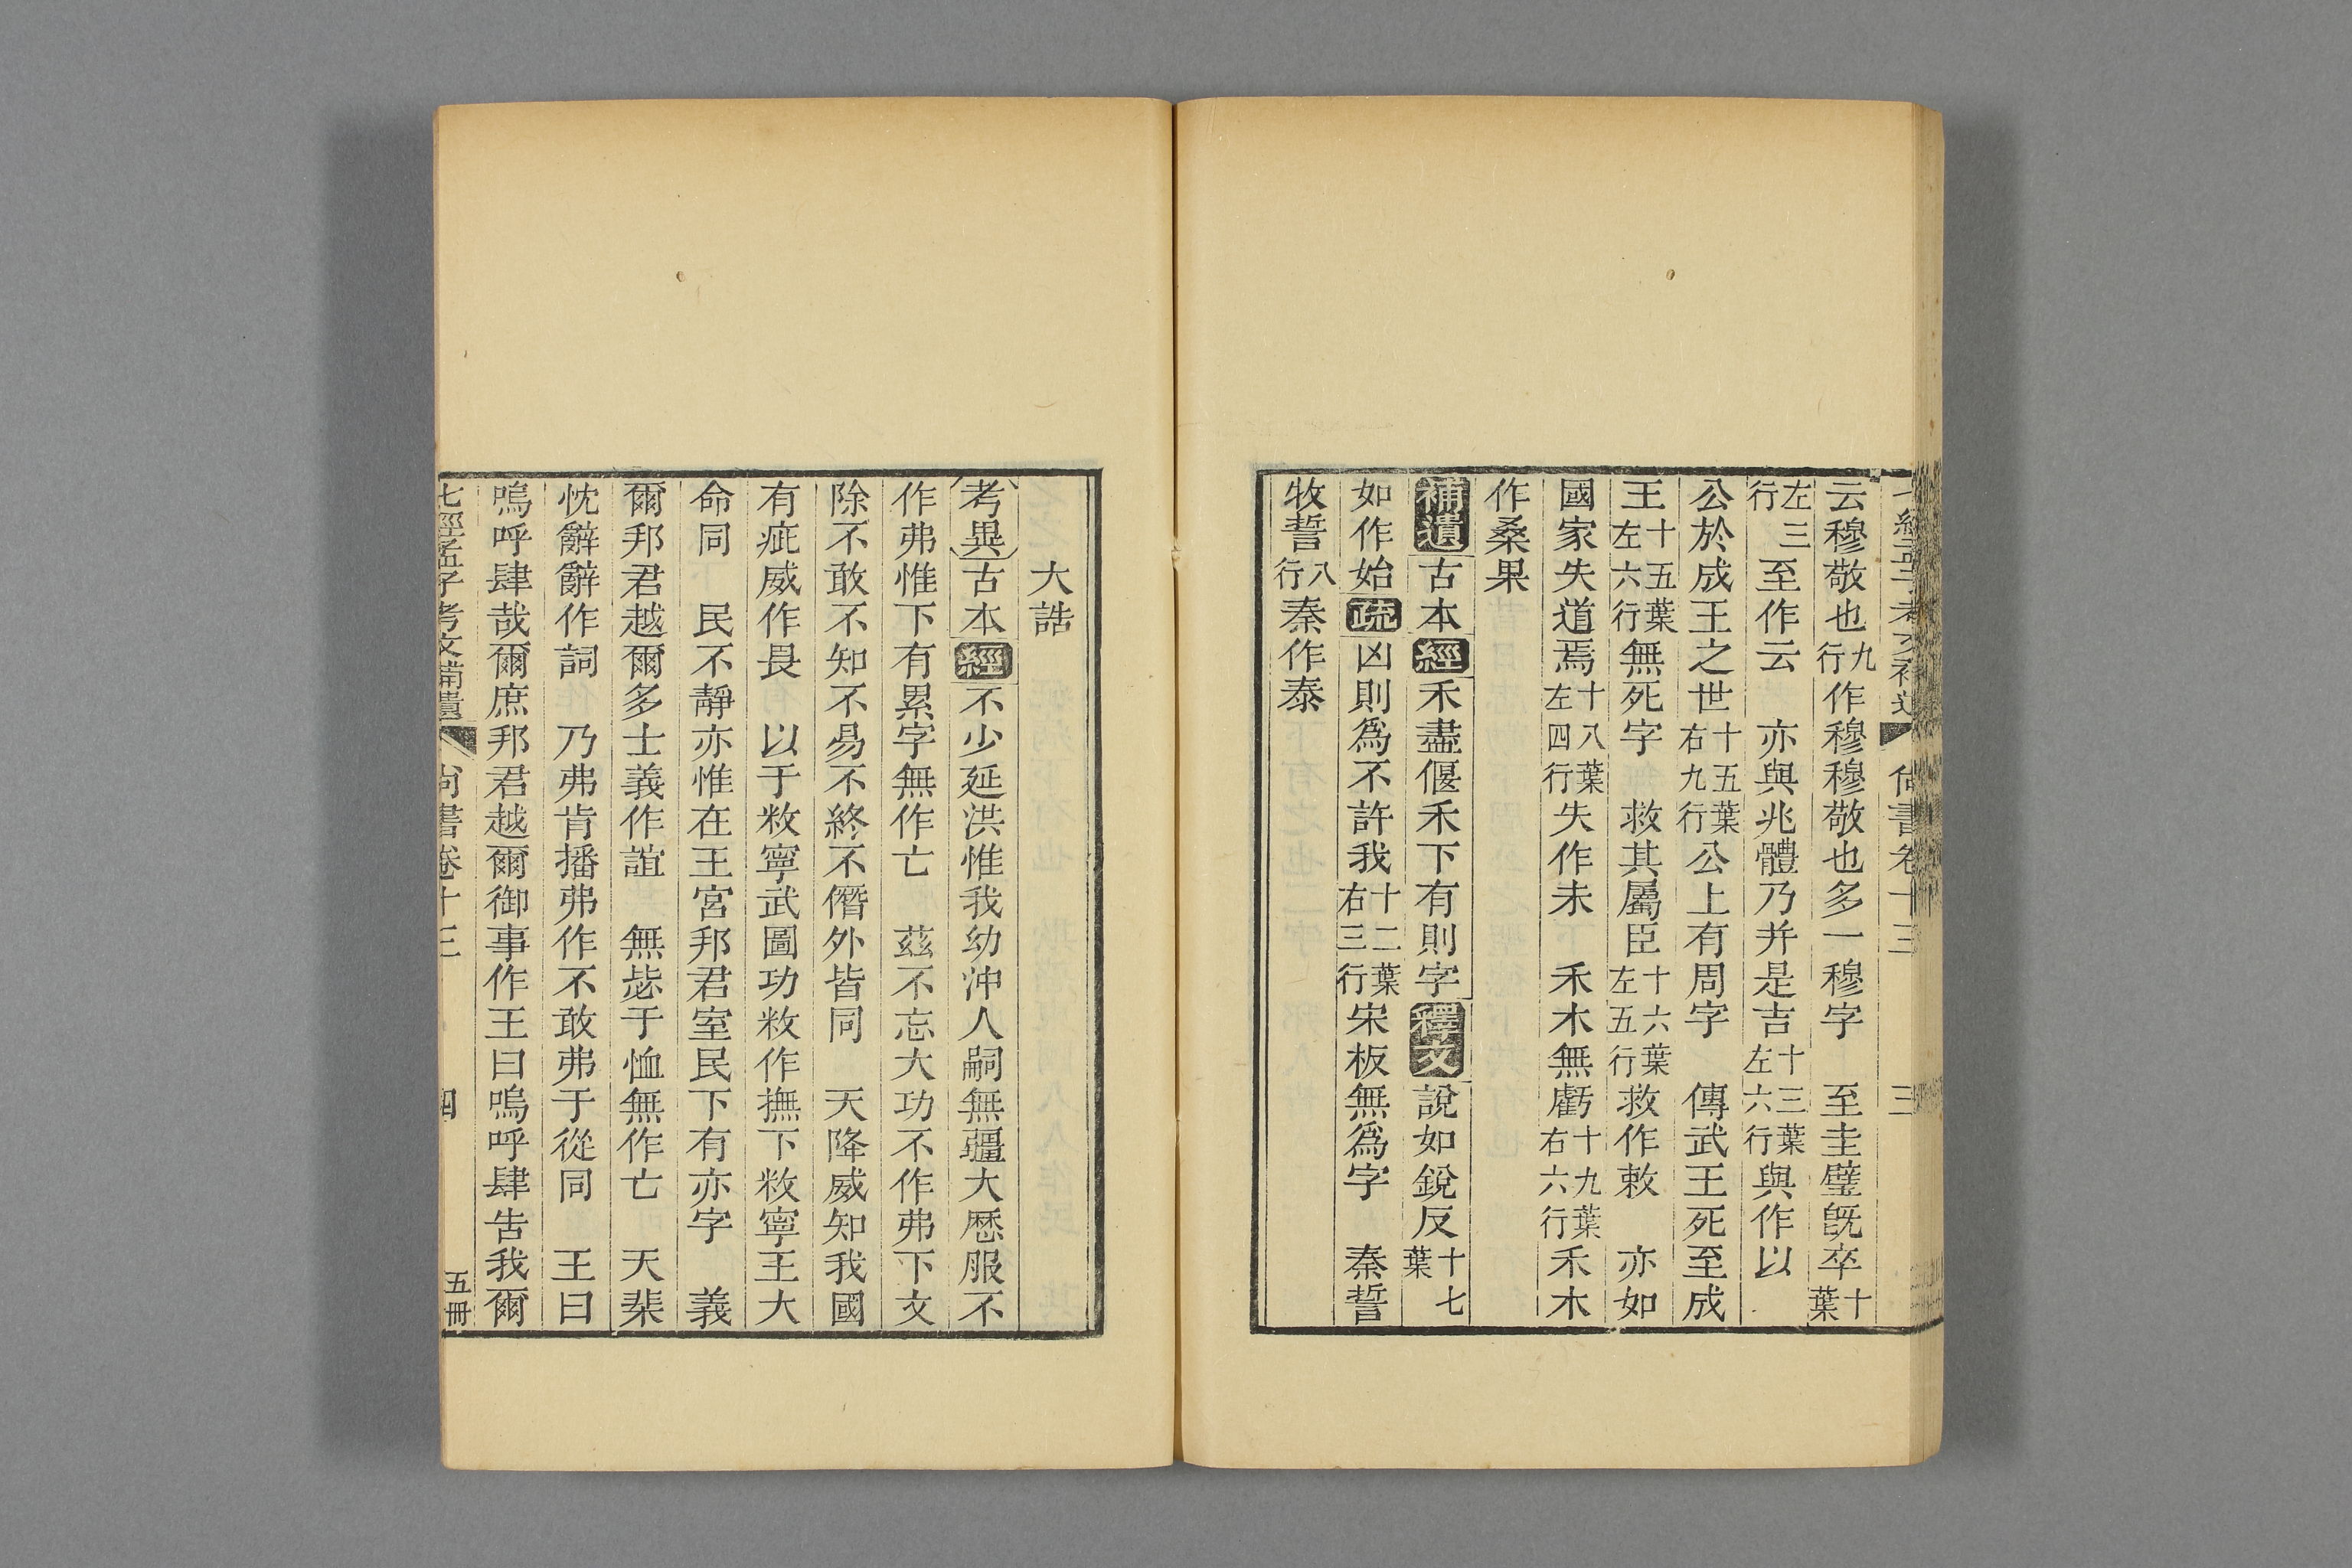 七經孟子考文補遺 尚書卷十三 三
云穆敬也九行作穆穆敬也多一穆字 至圭璧旣卒十葉
左三行 至作云 亦與兆體乃并是吉十三葉左六行與作以
公於成王之世十五葉右九行公上有周字 傳武王死至成
王十五葉左六行無死字 救其屬臣十六葉左五行救作敕 亦如
國家失道焉十八葉左四行失作未 禾木無虧十九葉右六行禾木
作桑果
補遺古本經禾盡偃禾下有則字釋文說如銳反十七葉
如作始疏凶則爲不許我十二葉右三行宋板無爲字 秦誓
牧誓八行秦作泰
大誥
考異古本經不少延洪惟我幼沖人嗣無疆大歷服不
作弗惟下有累字無作亡 茲不忘大功不作弗下文
除不敢不知不易不終不僭外皆同 天降威知我國
有疵威作畏 以于敉寧武圖功敉作撫下敉寧王大
命同 民不靜亦惟在王宮邦君室民下有亦字 義
爾邦君越爾多士義作誼 無毖于恤無作亡 天棐
忱辭辭作詞 乃弗肯播弗作不敢弗于從同 王曰
嗚呼肆哉爾庶邦君越爾御事作王曰嗚呼肆告我爾
七經孟子考文補遺 尚書卷十三 四 五冊